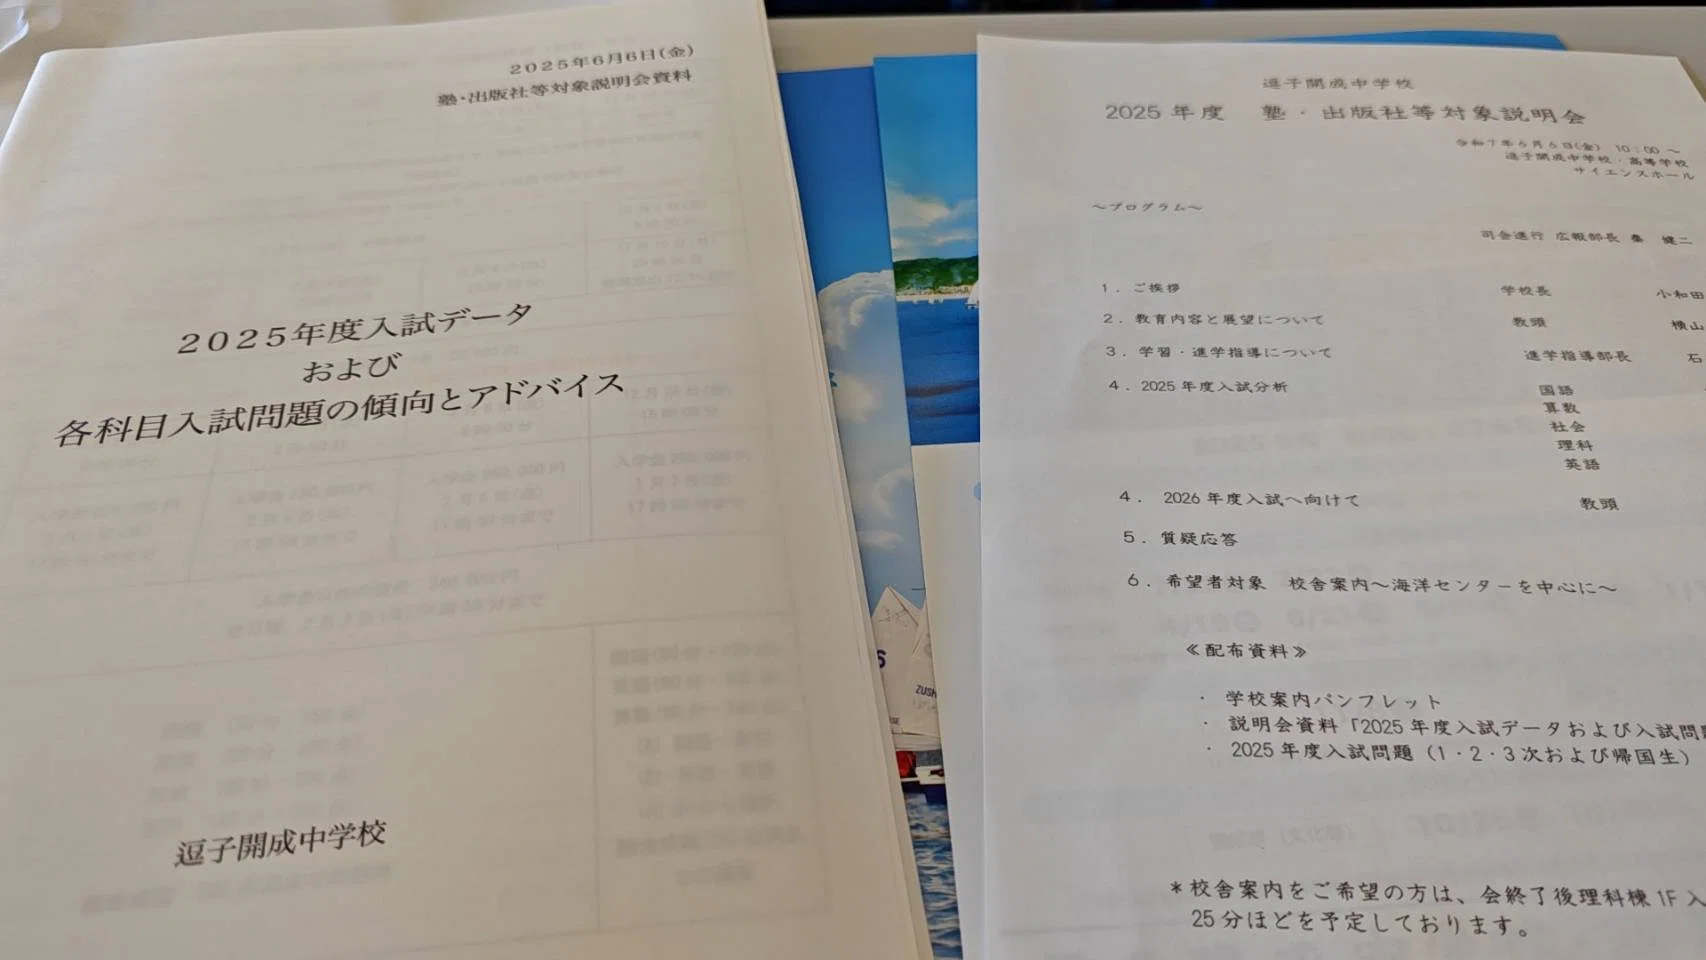 2025年6月6日(金)
塾・出版社等対象説明会資料
2025年度入試データ
および
各科目入試問題の傾向とアドバイス
逗子開成中学校
ZUSH
逗子開成中学校
2025年度 塾・出版社等対象説明会
令和7年6月6日(金) 10:00 ～
逗子開成中学校・高等学校
サイエンスホール
～プログラム～
司会進行 広報部長 秦 健二
1.ご挨拶 学校長 小和田
2.教育内容と展望について 教頭 横山
3.学習・進学指導について 進学指導部長 石
4.2025年度入試分析 国語
算数
社会
理科
英語
4. 2026年度入試へ向けて 教頭
5.質疑応答
6.希望者対象 校舎案内～海洋センターを中心に～
《配布資料》
・ 学校案内パンフレット
・ 説明会資料「2025年度入試データおよび入試問
・ 2025年度入試問題(1・2・3次および帰国生)
*校舎案内をご希望の方は、会終了後理科棟1F入
25分ほどを予定しております。